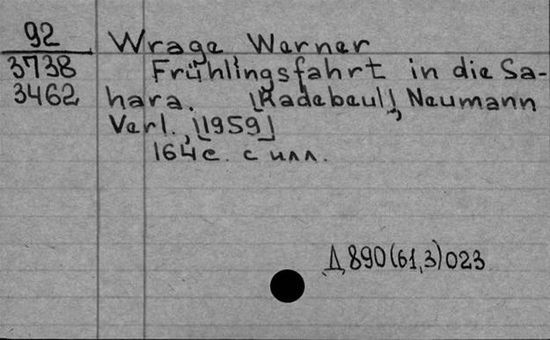 92 Wrage Werner
3738 Frühlingsfahrt in die Sa-
3462 hara. [Radebeul], Neumann
Verl., [1959]
164 с. с илл.
Д 890(61,3)023